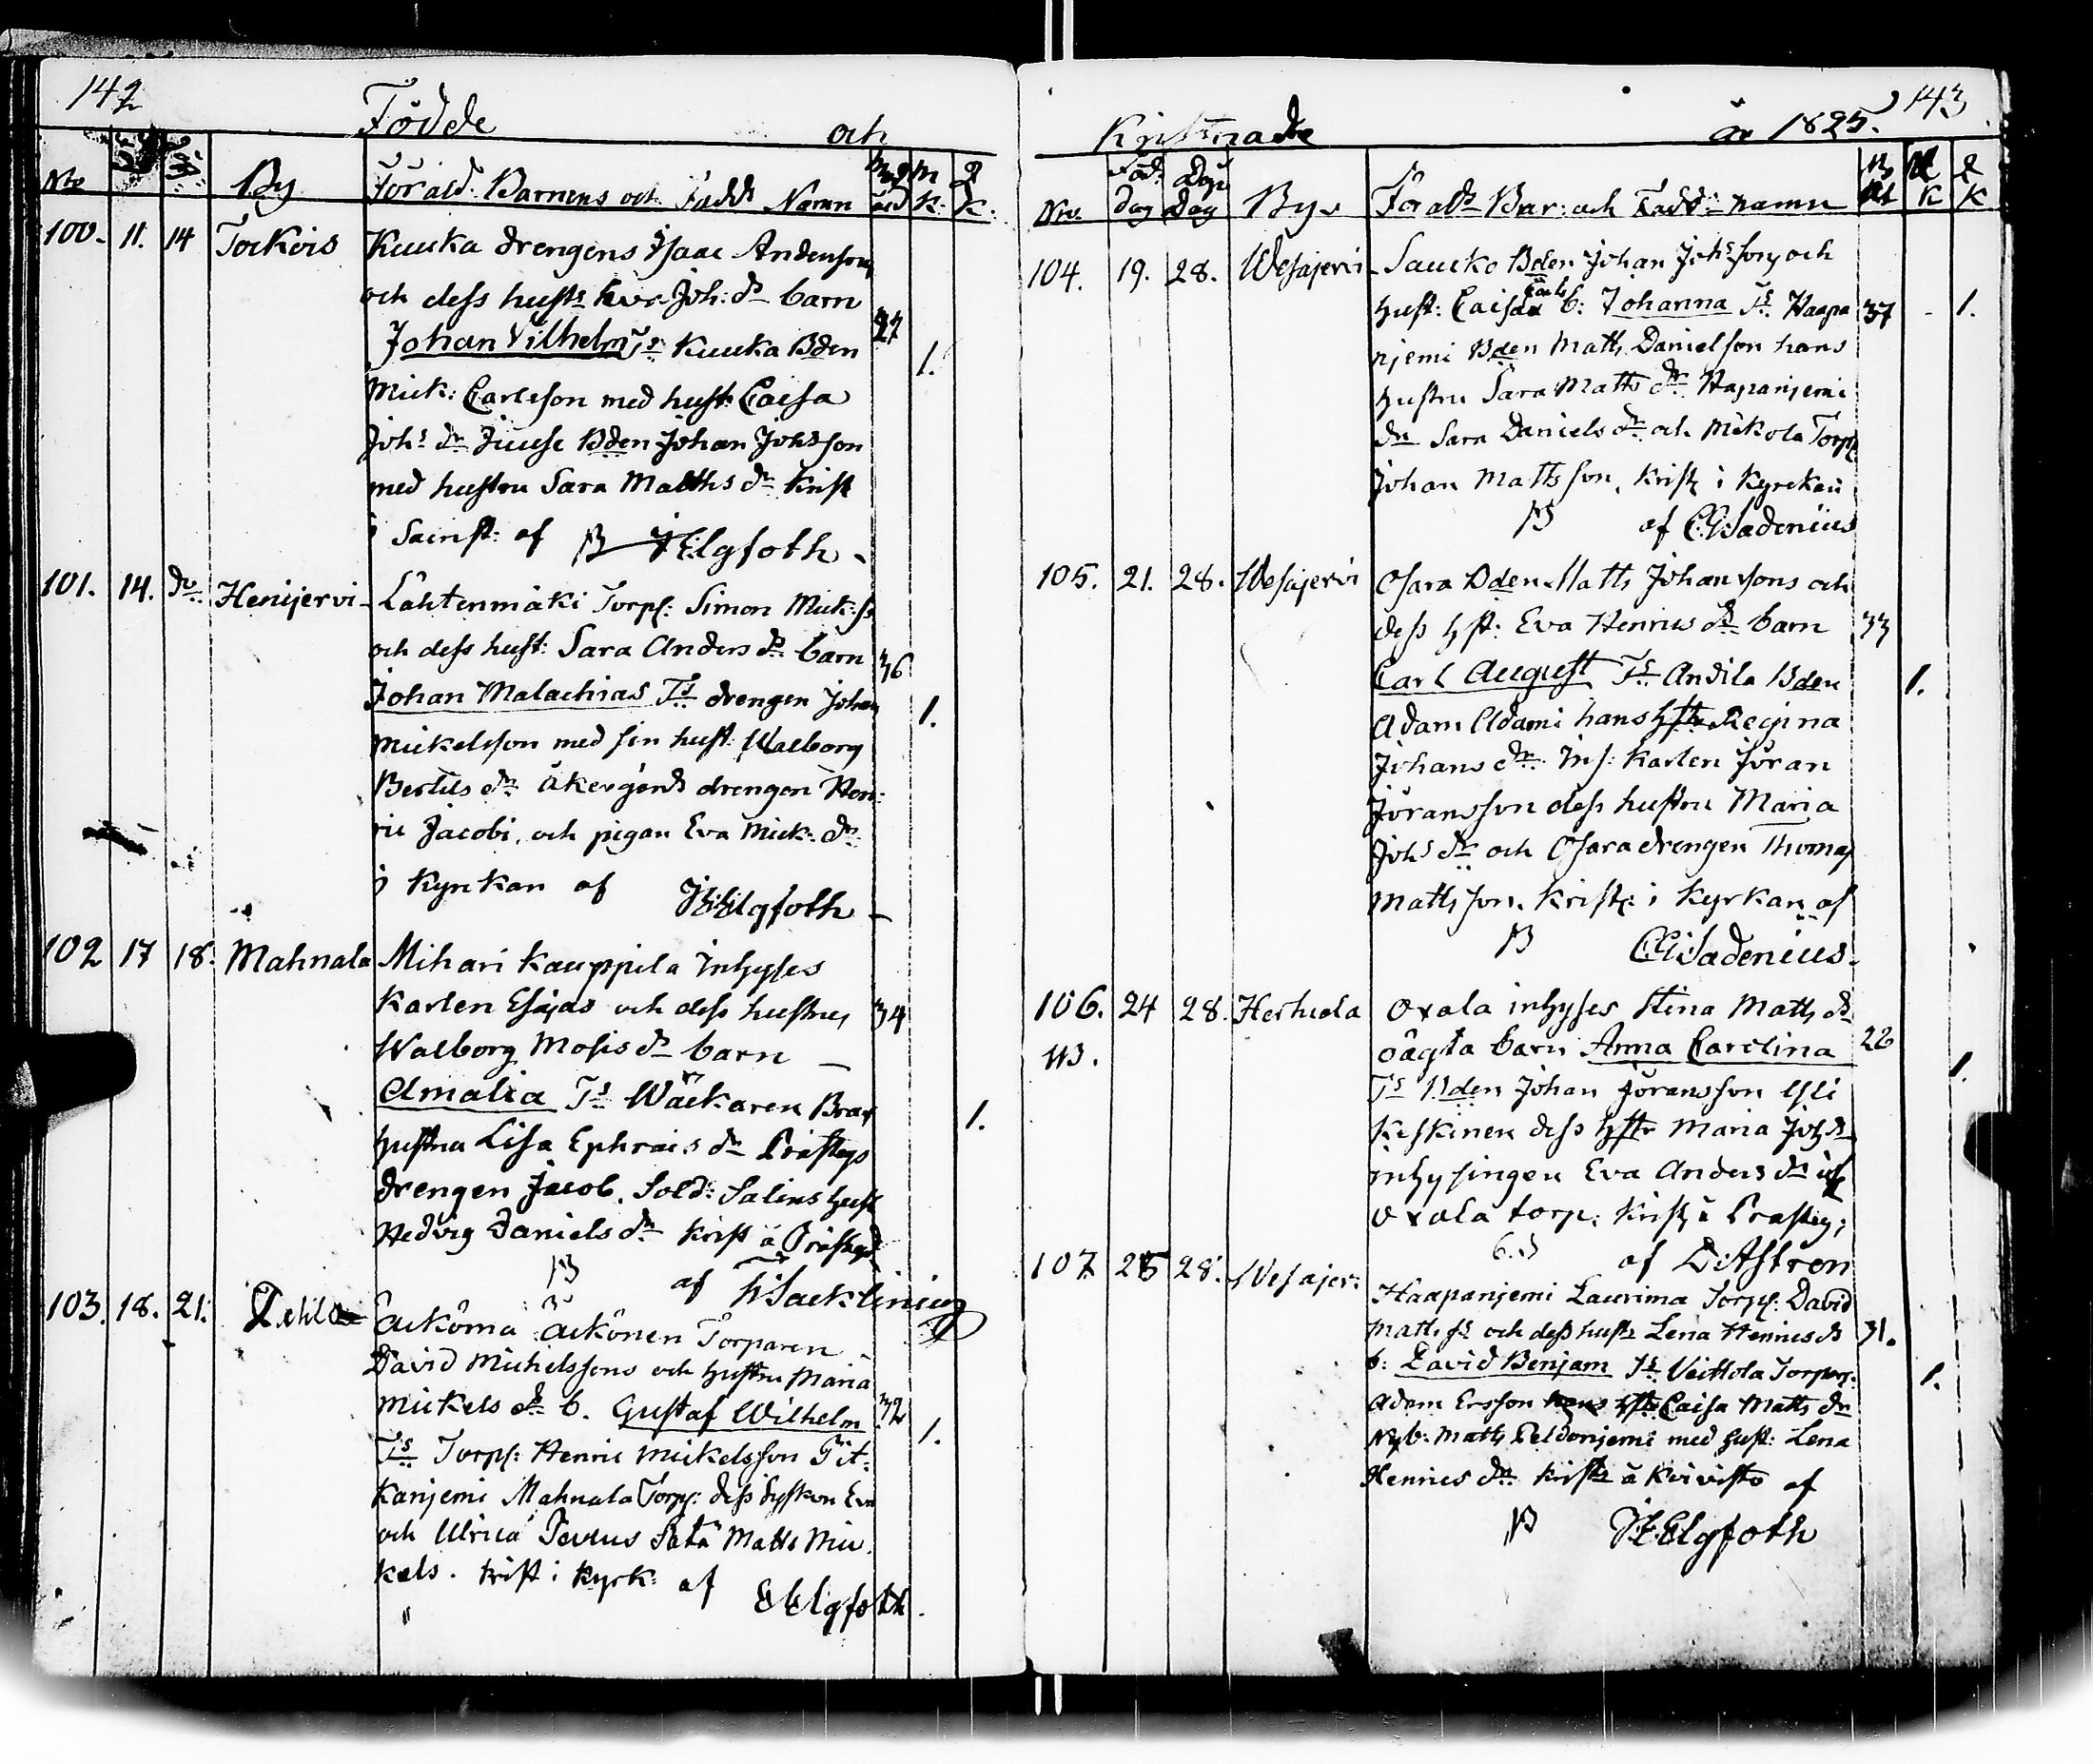 142
Födde och
No By Föräld: Barnens och Fadd Namn M K. Q K.
100. 11. 14 Tockois Kuuka drengens Isaac Anderson
och dess hustr Eva Joh: dr barn
27
Johan Vilhelm Ts Kuuka Bden
1.
Mick: Carlsson med hustr Caisa
Johs dr Juuse Bden Johan Johsson
med hustru Sara Matths dr Krist
i Sainst: af Elgfoth
101. 14. do Henijervi Lahtenmäki Torps: Simon Mick:s
och dess hust: Sara Anders dr barn 36
Johan Malachias Ts drengen Johan
1.
Mickelsson med sin hust: Walborg
Bertils dr Åkergårds drengen Hen:
ric Jacobi, och pigan Eva Mick: dr
i Kyrkan af Elgfoth
102 17 18. Mahnala Mihari Kauppila Inhyses
Karlen Esajas och dess hustru 34
Walborg Mosis dr barn
Amalia Ts Wäckaren
1.
hustru Lisa Ephrai:s dr Prästegs
drengen Jacob. Sold: Salins hust
Hedvig Daniels dr krist å Prästegd
B af
103. 18. 21. Torparen
David Michelssons och hustru Maria
Mickels dr b. Gustaf Wilhelm 32
1.
Ts Torps: Henric Mickelsson Pit:
kanjemi Mahnala Torps: dess syskon Eva
och Ulrica Matts Mic
kels. krist i kyrk: af Elgfoth.
143
Kristnade år 1825.
No. Föd: dag Döp: Dag By. Föräld: Bar: och Fadd: namn M K Q K
104. 19. 28. Wesajervi Saucko Bden Johan Johsson och
hust: Caisa Carls b: Johanna Ts Haapa 37 1.
njemi Bden Matts Danielsson hans
hustru Sara Matts dr Hapanjemi
dn Sara Daniels dr och Mikola Torp
Johan Mattsson, krist i Kyrckan
B af C.G. Sadenius
105. 21. 28. Wesajervi Osara Bden Matts Johanssons och
dess hst: Eva Henrics dr barn 33
Carl August Ts Andila Bden
1.
Adam Adami hans hstr Regina
Johans dr. Inh: Karlen Jöran
Jöransson dess hustru Maria
Johs dr och Osara drengen Thomas
Mattsson. Krist: i Kyrkan af
B C.G. Sadenius
106. 24 28. Herttuala Oxala inhyses Stina Matts dr
113. oägta barn Anna Carolina 26
1.
Ts Bden Johan Jöransson Yli
Keskinen dess hstr Maria Joh dr
inhysingen Eva Anders dr ifr
Oxala torp: krist å Prästeg;
af D: Astren
107. 25 28. Wesajer: Haapanjemi Laurima Torps: David
Matts s: och dess hustr Lena Henrics dr 31.
b: David Benjam Ts Veittola Torpar:
1.
Adam Ersson hans hstr Caisa Matts dr
Nyb: Matts Peldonjemi med hust: Lena
Henrics dr kristn å Koivisto af
B Elgfoth